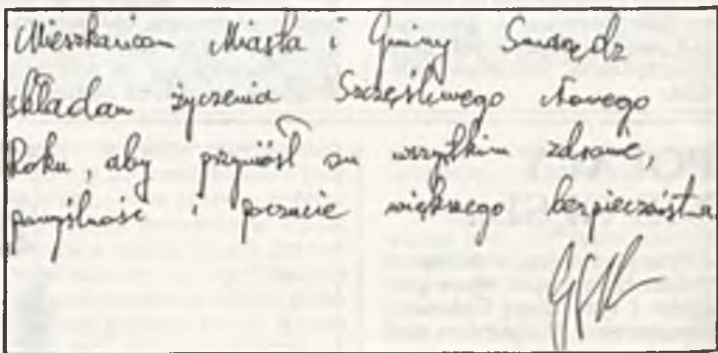 Mieszkańcom Miasta i Gminy Swarzędz
składam życzenia Szczęśliwego Nowego
Roku, aby przyniósł on wszystkim zdrowie,
pomyślność i poczucie większego bezpieczeństwa